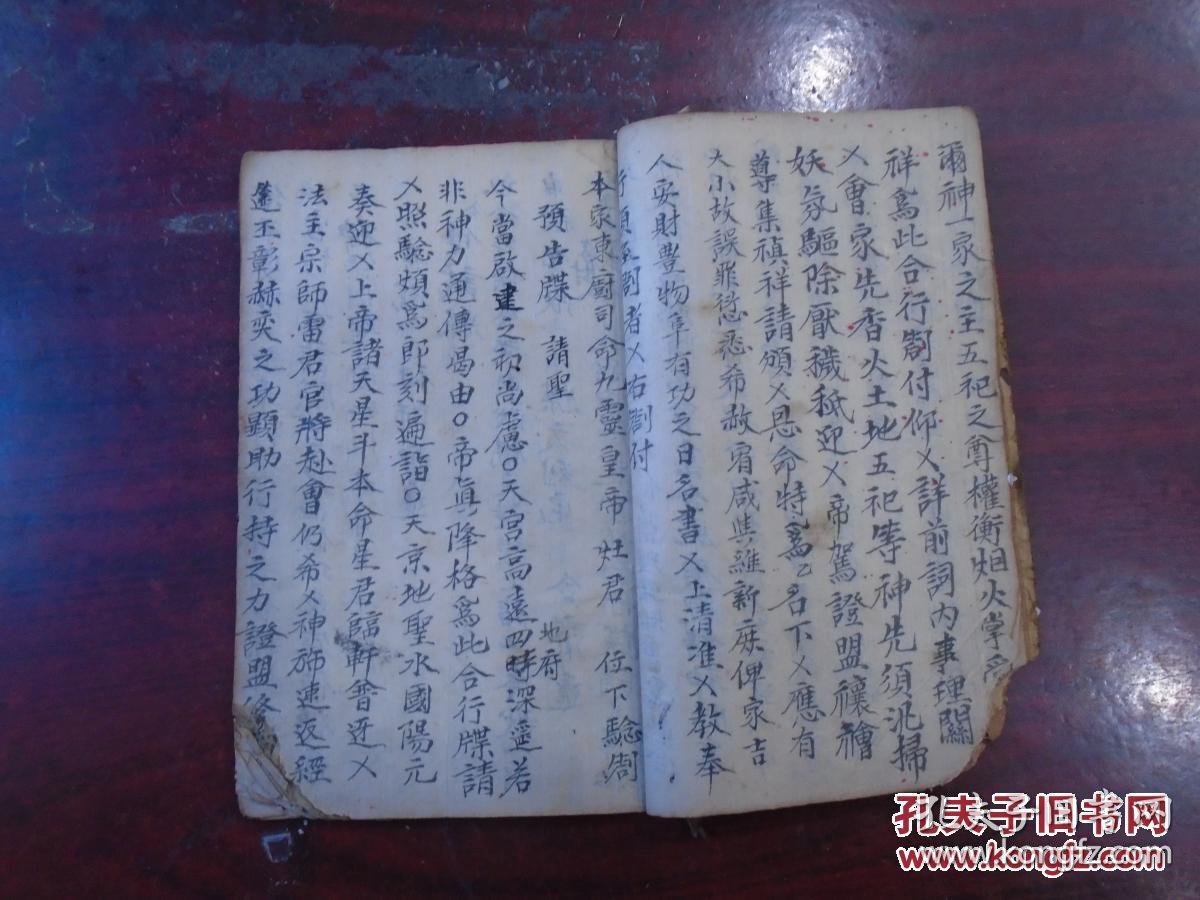 爾神一家之主五祀之尊權衡烟火掌
祥爲此合行劄付仰乂詳前詞內事理關
乂會家先香火土地五祀等神先須汛掃
妖氛驅除厭穢秪迎乂帝駕證盟禳禬
尊集禎祥請頒乂恩命特爲乙名下乂應有
大小故誤罪愆悉希赦宥咸與維新庶俾家吉
人安財豐物阜有功之日名書乂上清准乂教奉
行須至劄者乂右劄付
本家東廚司命九靈皇帝灶君 位下驗周
預告牒 請聖 地府
今當啟建之初尚慮○天宫高遠四時深遥若
非神力通傳曷由○帝眞降格爲此合行牒請
乂照驗煩爲即刻遍詣○天京地聖水國陽元
奏迎乂上帝諸天星斗本命星君臨軒會迓乂
法主宗師雷君官將赴會仍希乂神旆速返經
筵丕彰赫奕之功顯助行持之力證盟
孔夫子旧书网
www.kongfz.com